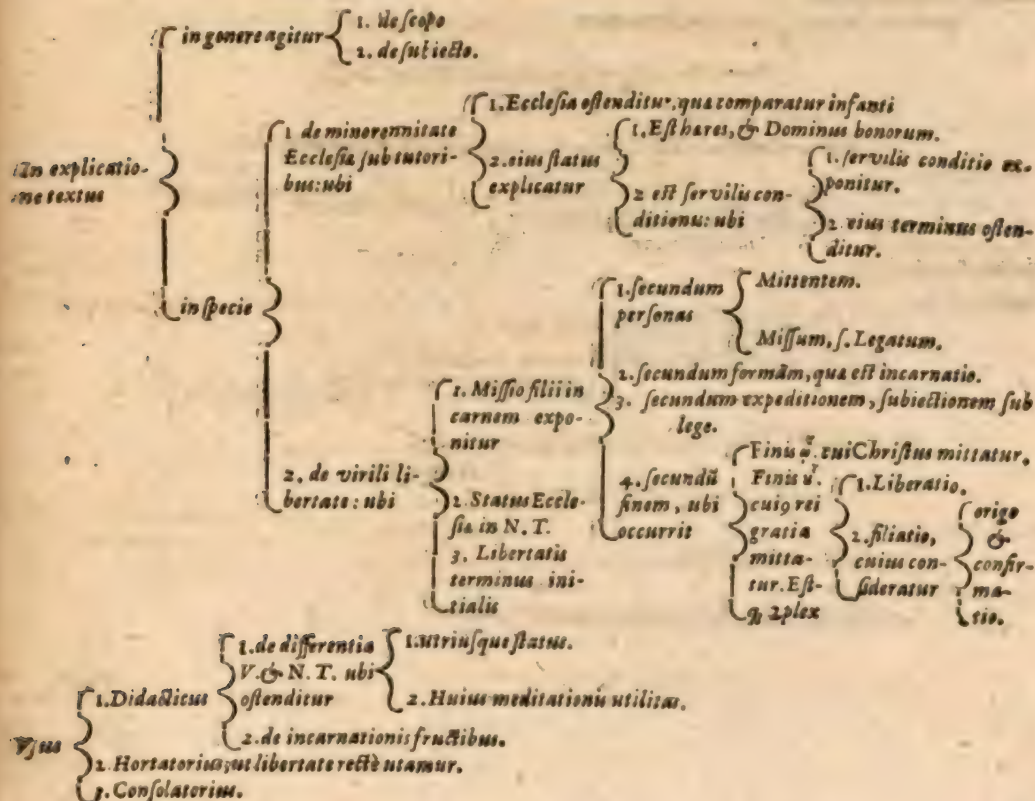 in genere agitur
1. de scopo
2. de subiecto.
In explicatio-
ne textus
in specie
1 de minorennitate
Ecclesia sub tutori-
bus: ubi
1. Ecclesia ostenditur, qua comparatur infanti
2. eius status
explicatur
1. Est hares, & Dominus bonorum.
2 est servilis con-
ditionis: ubi
1. servilis conditio ex-
ponitur.
2. eius terminus osten-
ditur.
2. de virili li-
bertate: ubi
1. Missio filii in
carnem expo-
nitur
1. secundum
personas
Mittentem.
Missum, s. Legatum.
2. secundum formam, qua est incarnatio.
3. secundum expeditionem, subiectionem sub
lege.
4. secundũ
finem, ubi
occurrit
Finis cui Christus mittatur.
Finis
cui9 rei
gratia
mitta-
tur. Est-
q; 2plex
1. Liberatio.
2. filiatio,
cuius con-
sideratur
origo
&
confir-
ma-
tio.
2. Status Eccle-
sia in N. T.
3. Libertatis
terminus ini-
tialis
Vsus
1. Didacticus
1. de differentia
V. & N. T. ubi
ostenditur
1. utriusque status.
2. Huius meditationis utilitas.
2. de incarnationis fructibus.
2. Hortatorius, ut libertate rectè utamur.
3. Consolatorius.